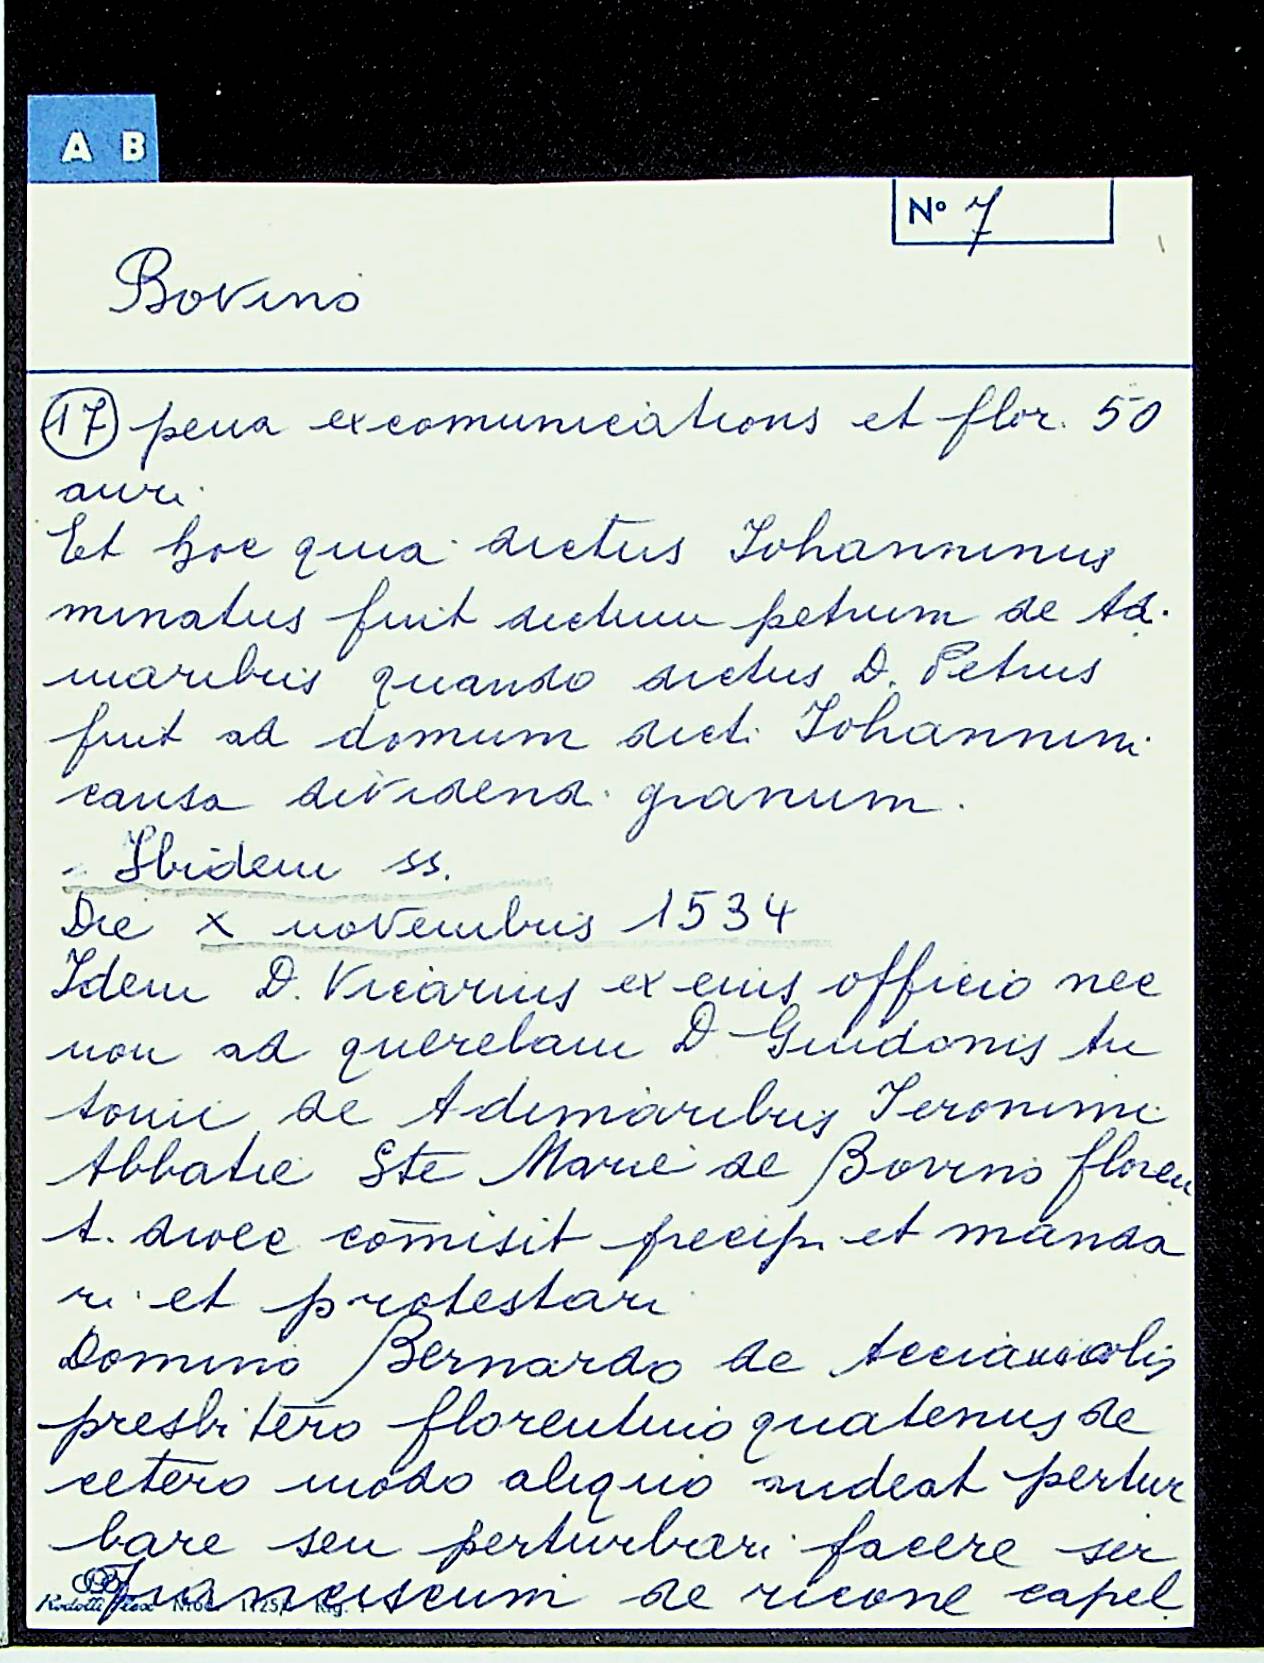 A B
Nº 7
Bovino
17 pena excomunicationis et flor. 50
auri.
Et hoc quia dictus Iohanninus
minatus fuit dictum petrum de Ad.
maribus quando dictus D. Petrus
fuit ad domum dicti Iohannini
causa dividendi granum.
- Ibidem ss.
Die X novembris 1534
Idem D. Vicarius ex eius officio nec
non ad querelam D. Guidonis An
tonii de Adimaribus Ieronimi
Abbatie Ste Marie de Bovino floren
t. dioec comisit precip. et manda
ri et protestari
Domino Bernardo de
presbitero florentino quatenus de
cetero modo aliquo audeat pertur
bare seu perturbari facere ser
Franciscum de ricone capel